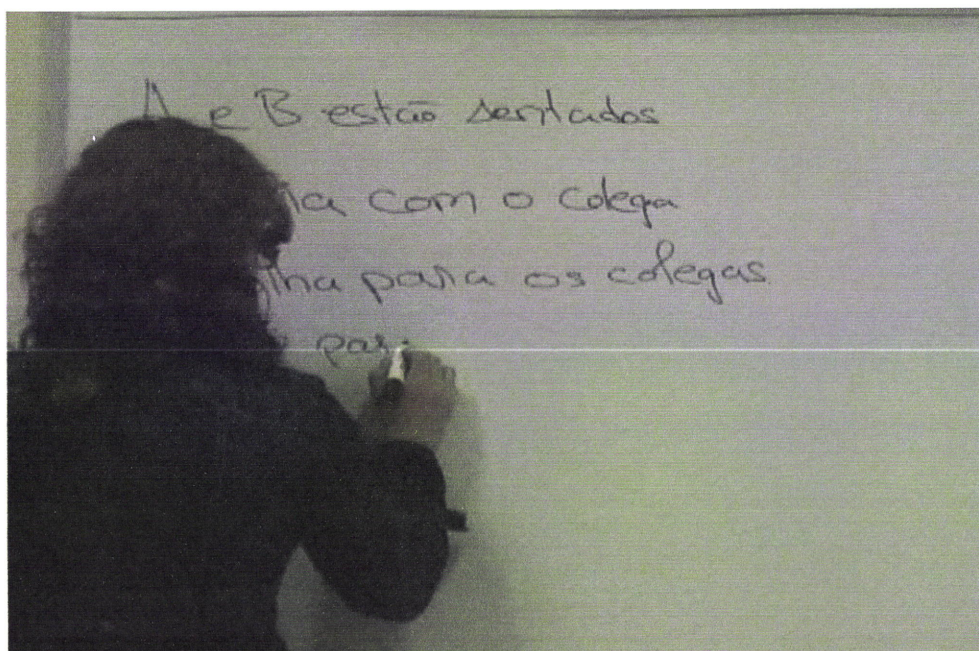 A e B estão sentados
com o colega
para os colegas